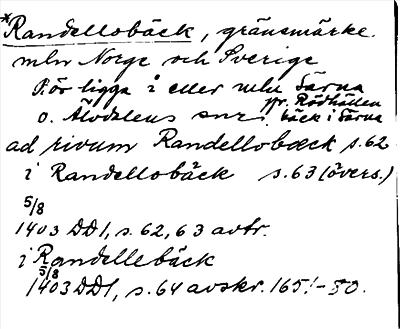 *Randellobäck, gränsmärke.
mln Norge och Sverige
P. ör ligga i eller mln Särna
o. Älvdalens snr. jfr. Rödhällen bäck i Särna
ad rivum Randellobæck s. 62
i Randellobäck s. 63 (övers.)
5/8
1403 DD1, s. 62, 63 avtr.
i Randellebäck
5/8
1403 DD1, s. 64 avskr. 165!-80.